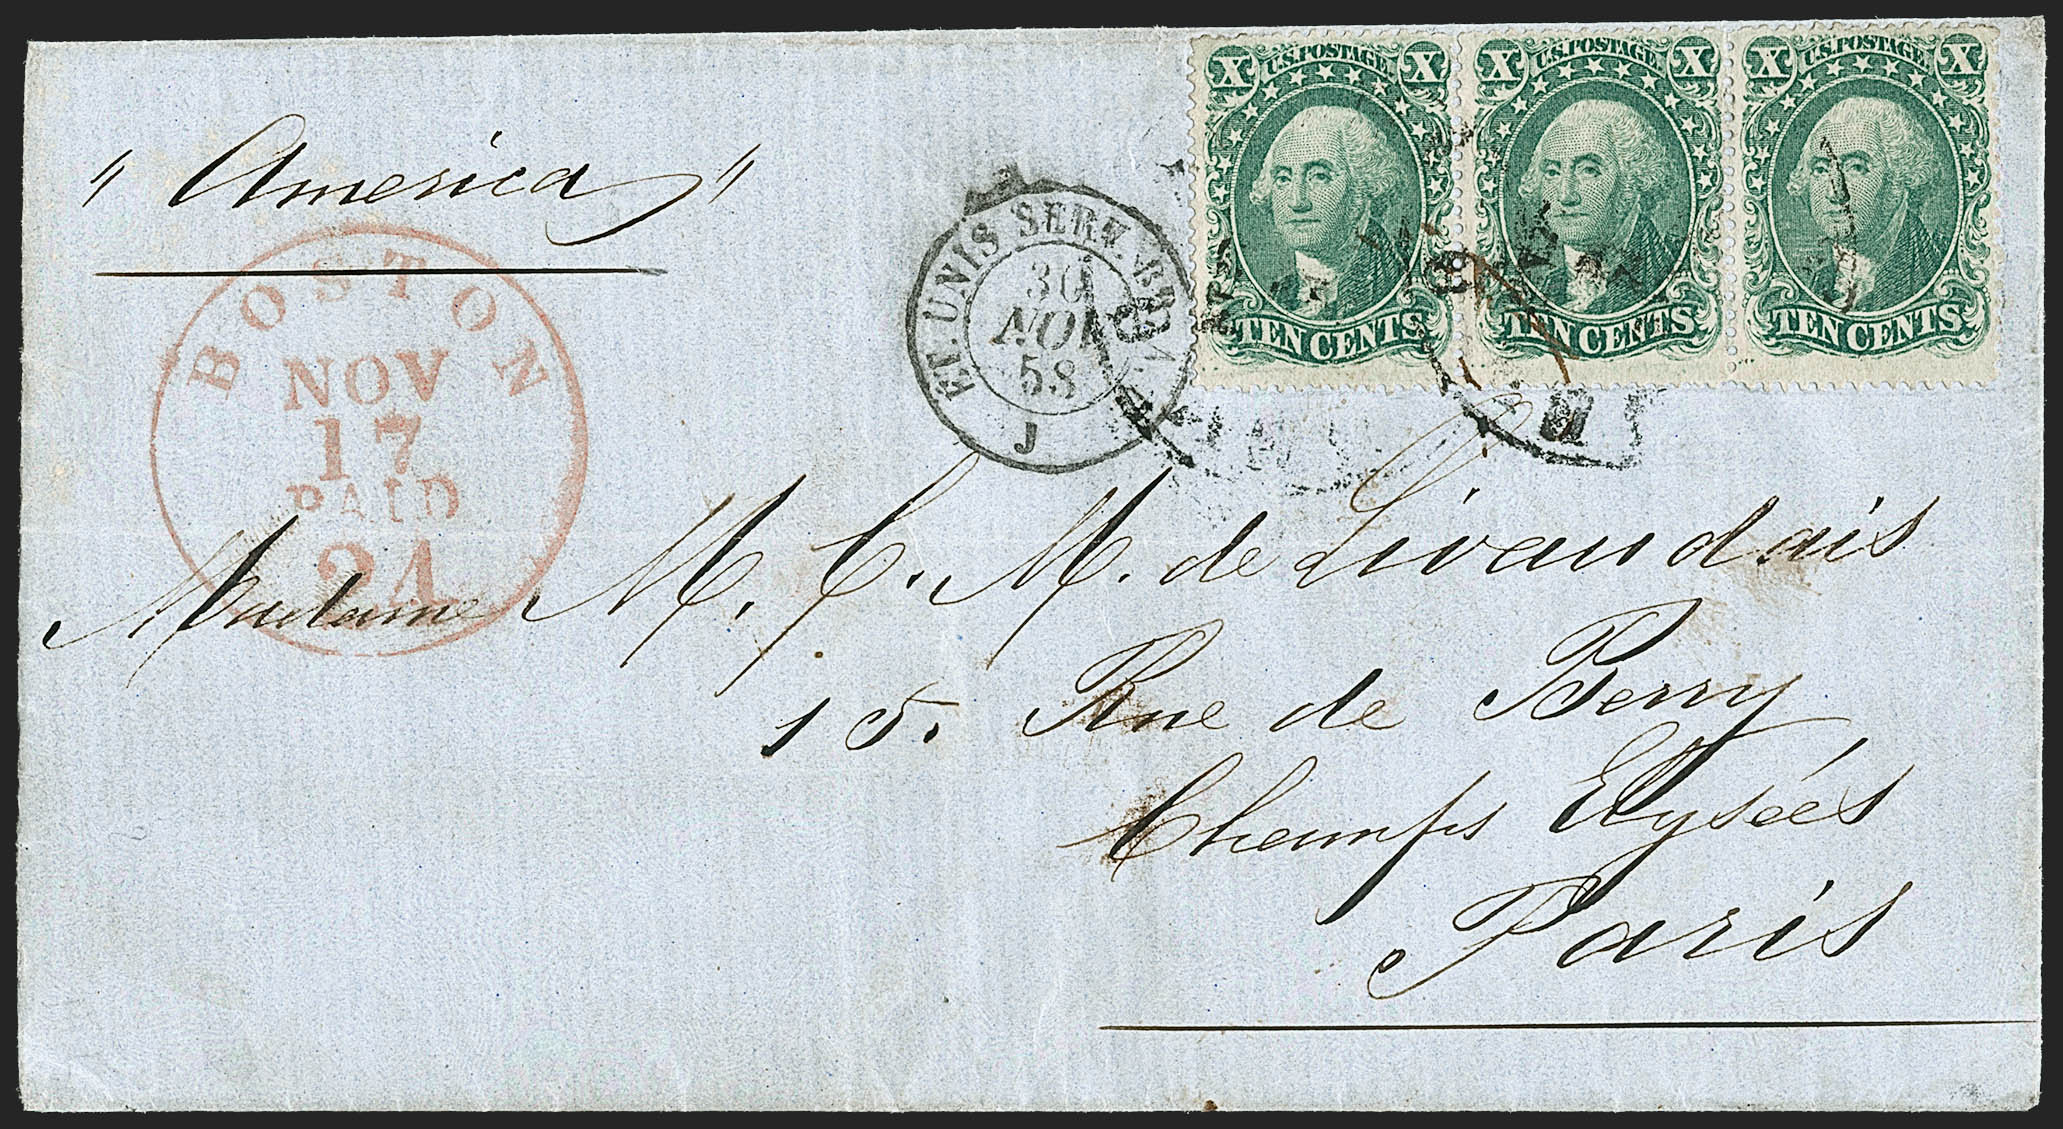 " America "
X U.S. POSTAGE. X
TEN CENTS
X U.S. POSTAGE. X
TEN CENTS
X U.S. POSTAGE. X
TEN CENTS
BOSTON
NOV
17
PAID
24
ET. UNIS SERV.
30
NOV
58
J
Madame M. C. M. de Livaudais
15. Rue de Berry
Champs Elysées
Paris